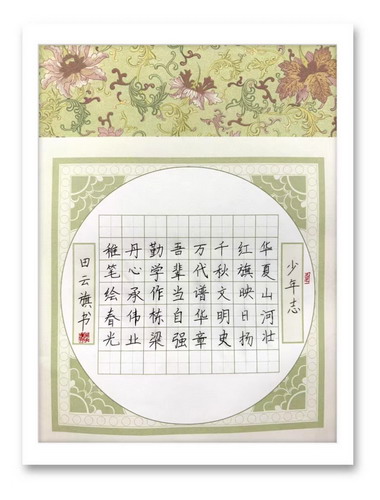 少年志
华夏山河壮
红旗映日扬
千秋文明史
万代谱华章
吾辈当自强
勤学作栋梁
丹心承伟业
稚笔绘春光
田云旗书